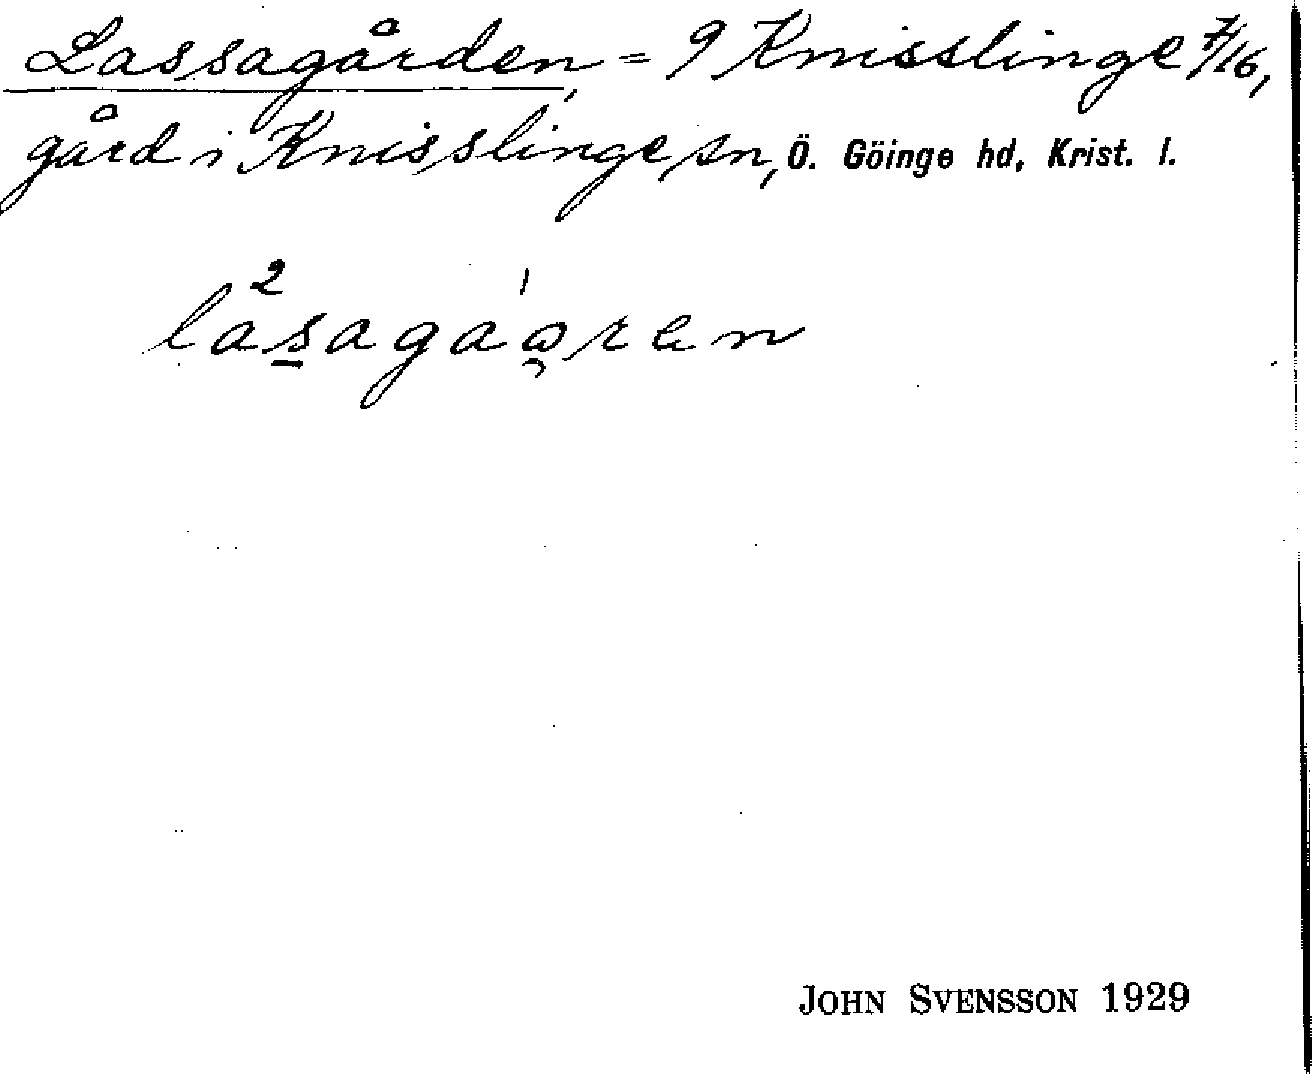 Lassagården, = 9 Knisslinge 7/16,
gård i Knisslinge sn, Ö. Göinge hd, Krist. l.
la²sagá̀o̯ren
JOHN SVENSSON 1929